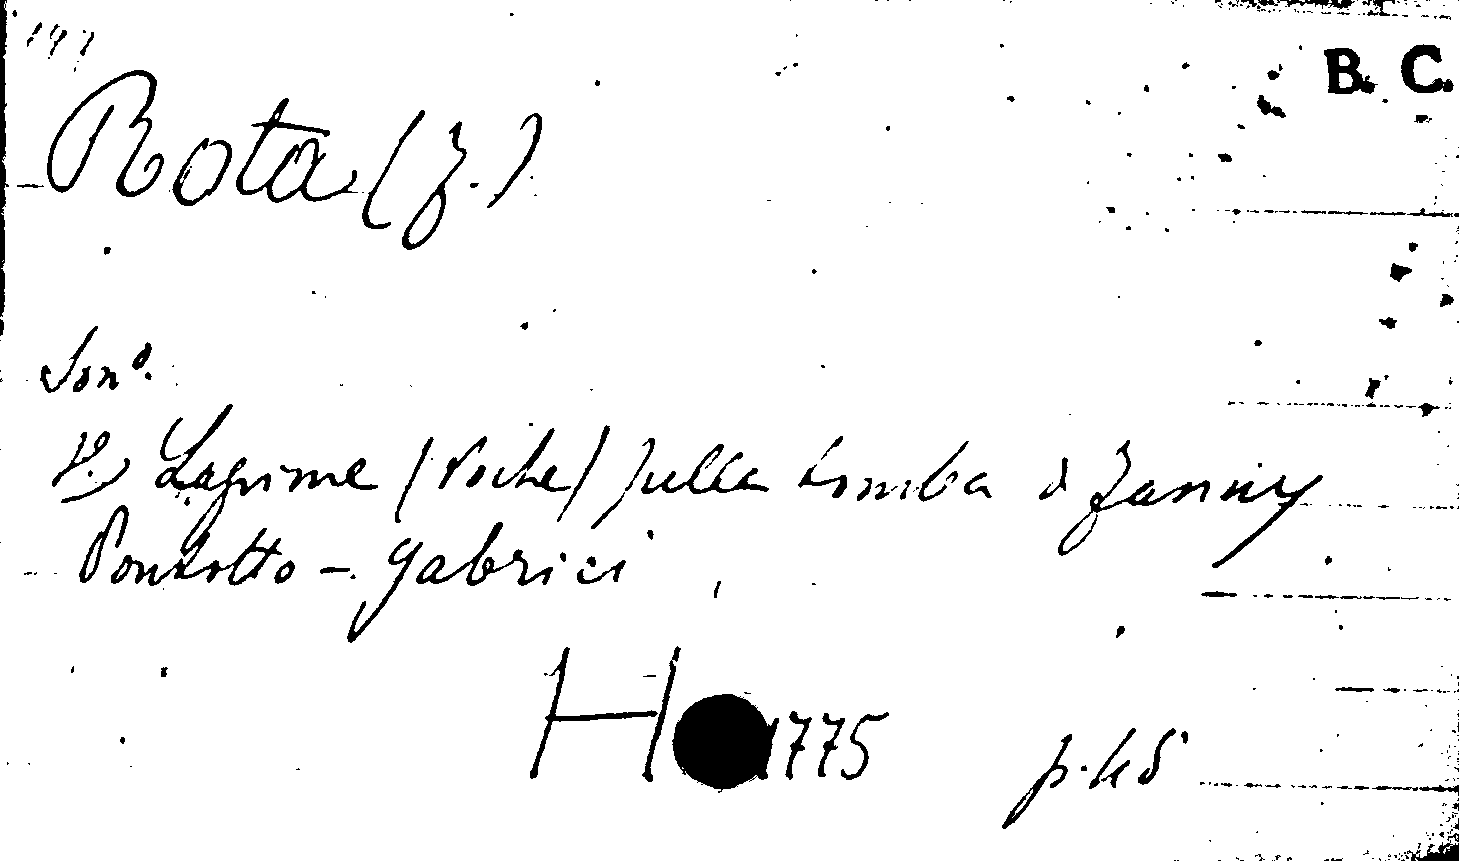 197
B. C.
Rota (F.)
Son°.
V. Lagrime (Poche) sulla tomba di Fanny
Pontotto - Gabrici
H 1775 p. 45